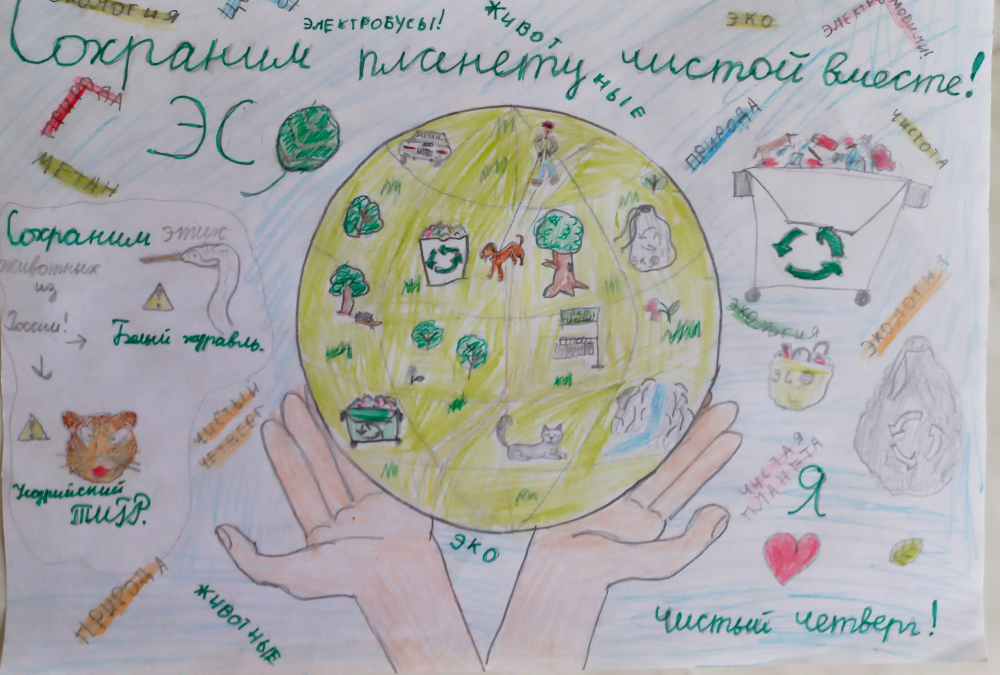 ЭКОЛОГИЯ
ЭЛЕКТРОБУСЫ!
ЖИВОТНЫЕ
ЭКО
Сохраним планету чистой вместе!
ЭС
МЕТАН
ПРИРОДА
ЧИСТОТА
Сохраним этих
животных
из
России!
Белый журавль.
Уссурийский
ТИГР.
ЧИСТЫЙ
ЧЕТВЕРГ
ПРИРОДА
ЖИВОТНЫЕ
ЭКО
ЭКО
ЭКОЛОГИЯ
ЭКОЛОГИЯ
ЧИСТАЯ
ПЛАНЕТА
Я
Чистый четверг!